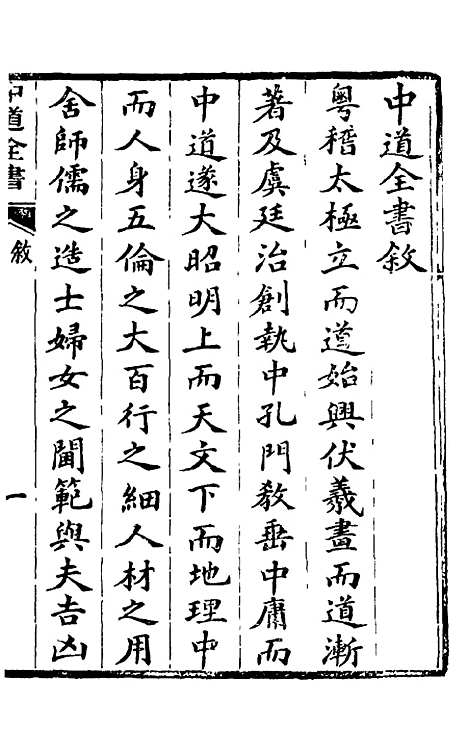 中道全書敘
粵稽太極立而道始興伏羲畫而道漸
著及虞廷治創執中孔門教垂中庸而
中道遂大昭明上而天文下而地理中
而人身五倫之大百行之細人材之用
舍師儒之造士婦女之閫範與夫吉凶
中道全書
敘
一